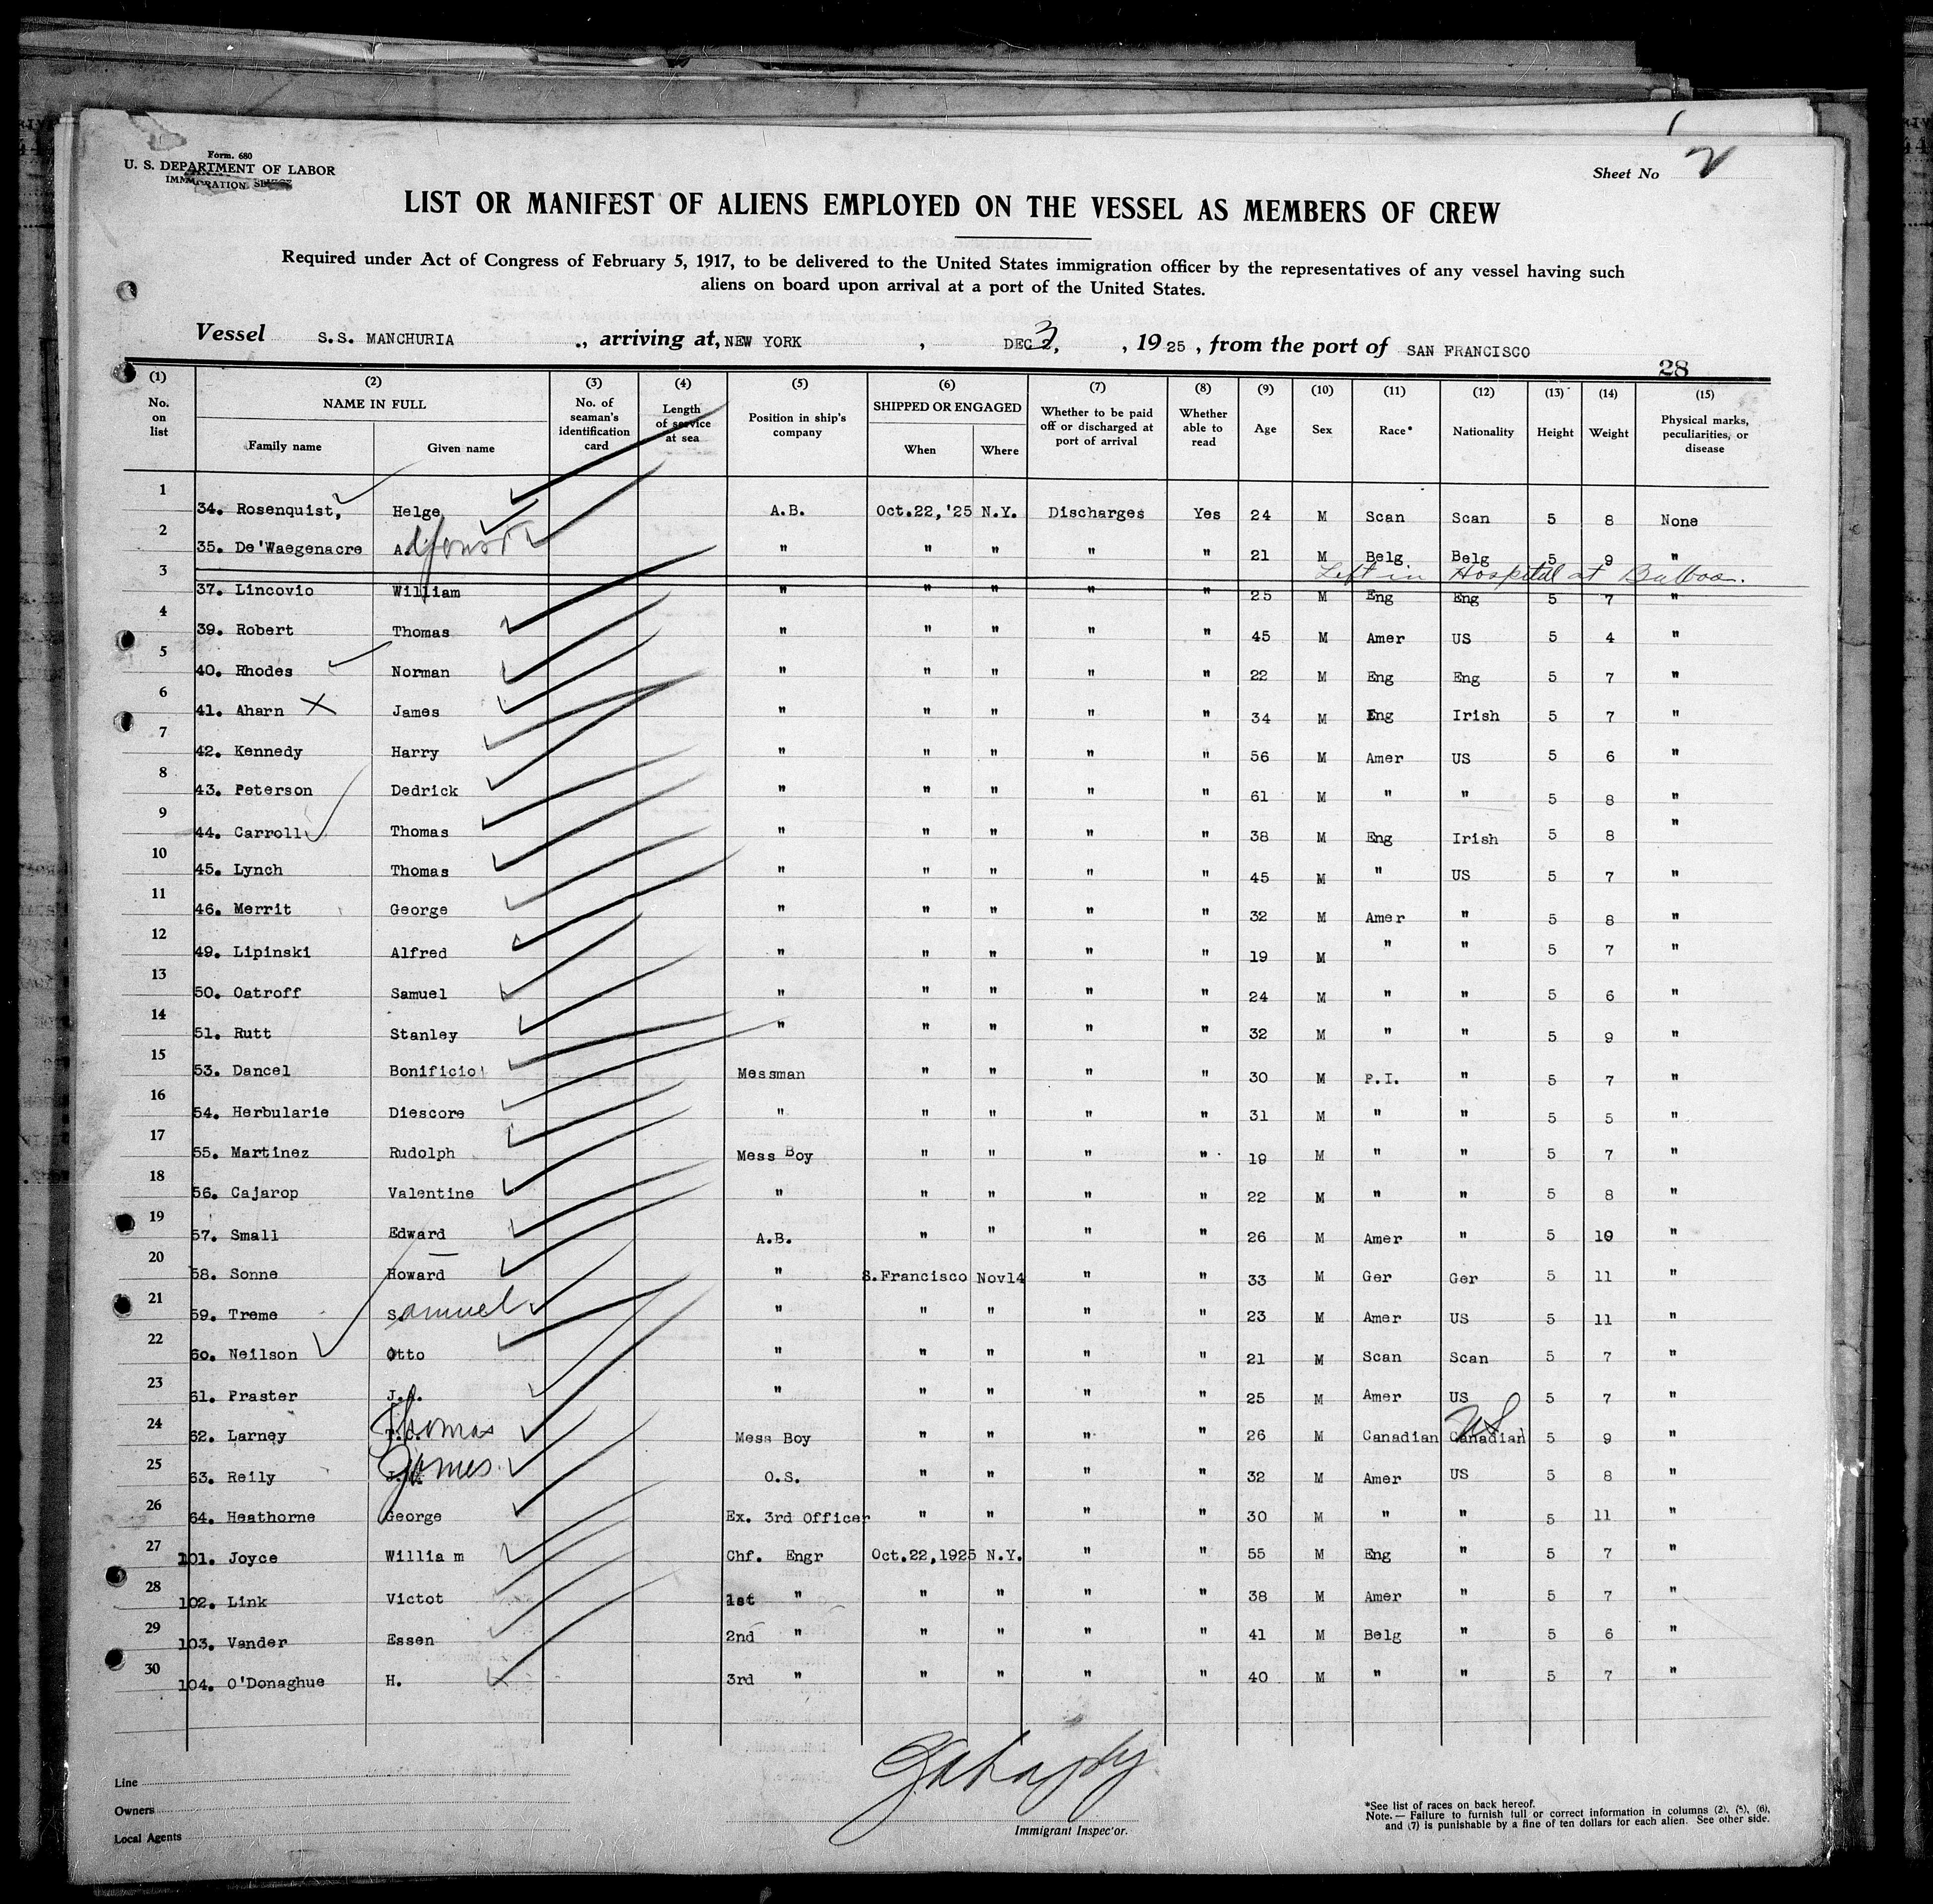 Form. 680
U. S. DEPARTMENT OF LABOR
IMMIGRATION SERVICE
Sheet No 2
LIST OR MANIFEST OF ALIENS EMPLOYED ON THE VESSEL AS MEMBERS OF CREW
Required under Act of Congress of February 5, 1917, to be delivered to the United States immigration officer by the representatives of any vessel having such
aliens on board upon arrival at a port of the United States.
Vessel S.S. MANCHURIA ., arriving at, NEW YORK , DEC 3, , 19 25 , from the port of SAN FRANCISCO
28
(1) (2) (3) (4) (5) (6) (7) (8) (9) (10) (11) (12) (13) (14) (15)
No. on list NAME IN FULL Family name Given name No. of seaman's identification card Length of service at sea Position in ship's company SHIPPED OR ENGAGED When Where Whether to be paid off or discharged at port of arrival Whether able to read Age Sex Race* Nationality Height Weight Physical marks, peculiarities, or disease
1 34. Rosenquist, Helge A.B. Oct.22,'25 N.Y. Discharges Yes 24 M Scan Scan 5 8 None
2 35. De'Waegenacre A. " " " " " 21 M Belg Belg 5 9 "
Left in Hospital at Balboa.
3 37. Lincovio William " " " " " 25 M Eng Eng 5 7 "
4 39. Robert Thomas " " " " " 45 M Amer US 5 4 "
5 40. Rhodes Norman " " " " " 22 M Eng Eng 5 7 "
6 41. Aharn X James " " " " " 34 M Eng Irish 5 7 "
7 42. Kennedy Harry " " " " " 56 M Amer US 5 6 "
8 43. Peterson Dedrick " " " " " 61 M " " 5 8 "
9 44. Carroll Thomas " " " " " 38 M Eng Irish 5 8 "
10 45. Lynch Thomas " " " " " 45 M " US 5 7 "
11 46. Merrit George " " " " " 32 M Amer " 5 8 "
12 49. Lipinski Alfred " " " " " 19 M " " 5 7 "
13 50. Oatroff Samuel " " " " " 24 M " " 5 6 "
14 51. Rutt Stanley " " " " " 32 M " " 5 9 "
15 53. Dancel Bonificio Messman " " " " 30 M P.I. " 5 7 "
16 54. Herbularie Diescore " " " " " 31 M " " 5 5 "
17 55. Martinez Rudolph Mess Boy " " " " 19 M " " 5 7 "
18 56. Cajarop Valentine " " " " " 22 M " " 5 8 "
19 57. Small Edward A.B. " " " " 26 M Amer " 5 10 "
20 58. Sonne Howard " S.Francisco Nov14 " " 33 M Ger Ger 5 11 "
21 59. Treme Samuel " " " " " 23 M Amer US 5 11 "
22 60. Neilson Otto " " " " " 21 M Scan Scan 5 7 "
23 61. Praster J.A. " " " " " 25 M Amer US 5 7 "
24 62. Larney Thomas Mess Boy " " " " 26 M Canadian Canadian US 5 9 "
25 63. Reily James O.S. " " " " 32 M Amer US 5 8 "
26 64. Heathorne George Ex. 3rd Officer " " " " 30 M " " 5 11 "
27 101. Joyce Willia m Chf. Engr Oct.22,1925 N.Y. " " 55 M Eng " 5 7 "
28 102. Link Victot 1st " " " " " 38 M Amer " 5 7 "
29 103. Vander Essen 2nd " " " " " 41 M Belg " 5 6 "
30 104. O'Donaghue H. 3rd " " " " " 40 M " " 5 7 "
Line
Owners
Local Agents
Immigrant Inspector.
*See list of races on back hereof.
Note.— Failure to furnish full or correct information in columns (2), (5), (6),
and (7) is punishable by a fine of ten dollars for each alien. See other side.